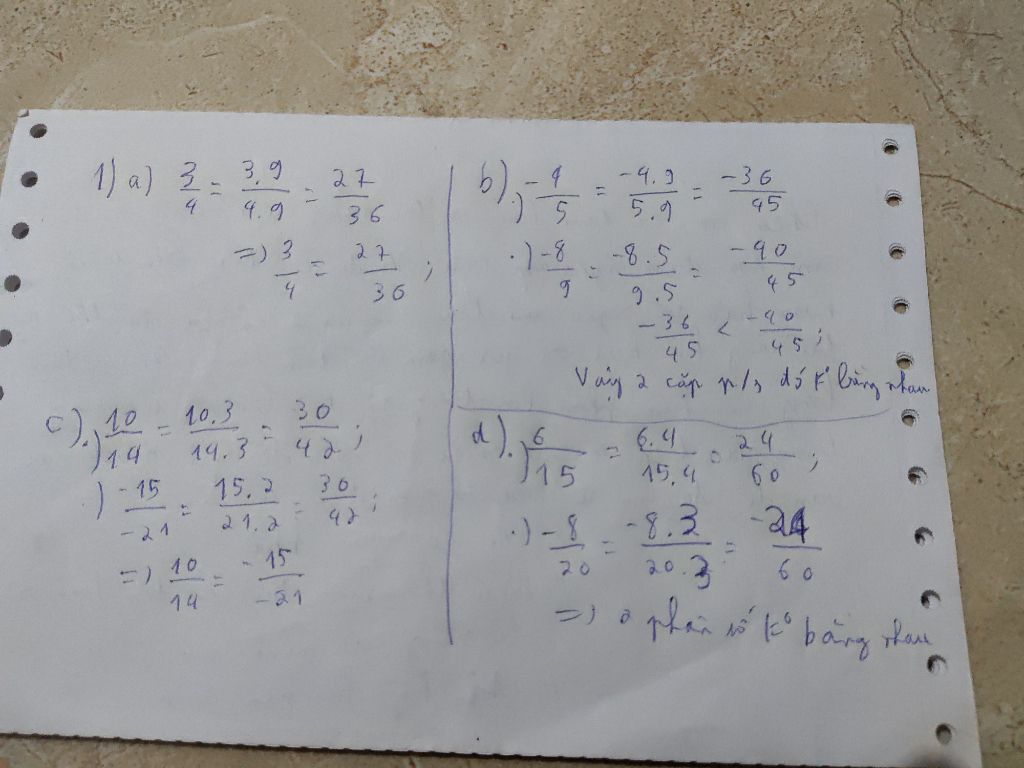 1) a) 3/4 = 3.9/4.9 = 27/36
=) 3/4 = 27/36 ;
b) .) -4/5 = -4.9/5.9 = -36/45
.) -8/9 = -8.5/9.5 = -40/45
-36/45 < -40/45 ;
Vậy 2 cặp p/s đó K° bằng nhau
c) .) 10/14 = 10.3/14.3 = 30/42 ;
.) -15/-21 = 15.2/21.2 = 30/42 ;
=) 10/14 = -15/-21
d) .) 6/15 = 6.4/15.4 = 24/60 ;
.) -8/20 = -8.3/20.3 = -24/60
=) phân số K° bằng nhau